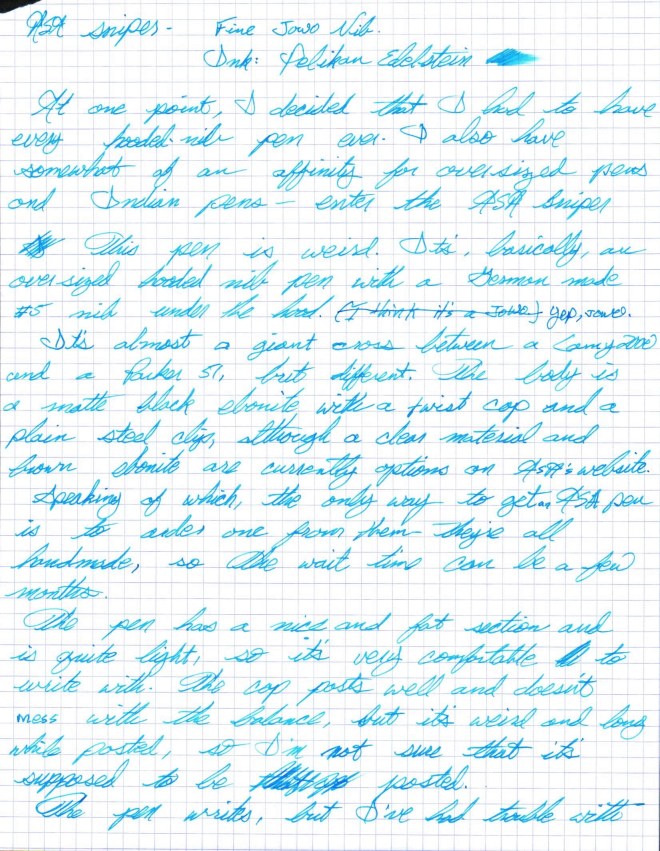 ASA Sniper - Fine Jowo Nib.
Ink: Pelikan Edelstein
At one point, I decided that I had to have
every hooded-nib pen ever. I also have
somewhat of an affinity for oversized pens
and Indian pens - enter the ASA Sniper
This pen is weird. It's, basically, an
over-sized hooded nib pen with a German made
#5 nib under the hood. (I think it's a Jowo) yep, Jowo.
It's almost a giant cross between a Lamy 2000
and a Parker 51, but different. The body is
a matte black ebonite with a twist cap and a
plain steel clip, although a clear material and
brown ebonite are currently options on ASA's website.
Speaking of which, the only way to get an ASA pen
is to order one from them they're all
handmade, so the wait time can be a few
months.
The pen has a nice and fat section and
is quite light, so it's very comfortable to
write with. The cap posts well and doesn't
mess with the balance, but it's weird and long
while posted, so I'm not sure that it's
supposed to be posted.
The pen writes, but I've had trouble with